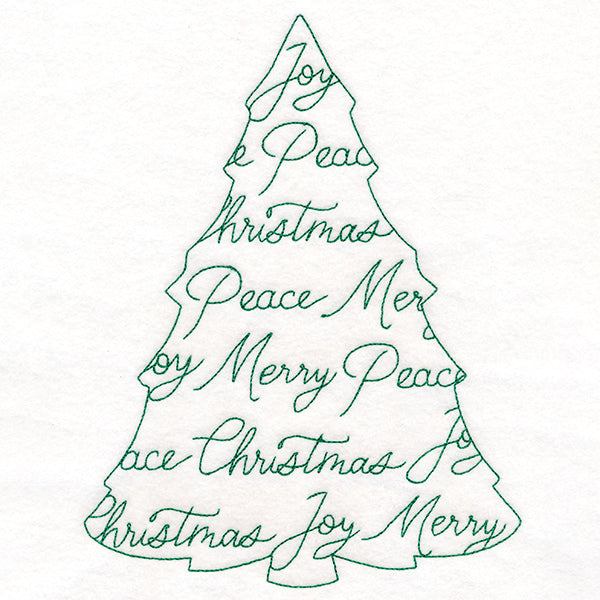 Joy
e Peac
hristmas
Peace Mer
oy Merry Peace
ace Christmas Jo
Christmas Joy Merry